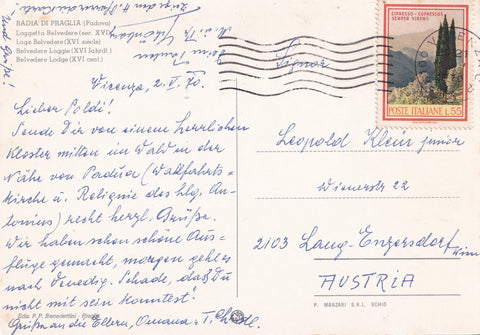 BADIA DI PRAGLIA (Padova)
Loggetta Belvedere (sec. XVI)
Loge Belvedere (XVI siècle)
Belvedere Loggia (XVI Jahrdt.)
Belvedere Lodge (XVI cent.)
Vicenza, 2. V. 70
Lieber Poldi!
Sende Dir von einem herrlichen
Kloster mitten im Wald in der
Nähe von Padua (Wallfahrts-
kirche u. Reliquie des hlg. An-
tonius) recht herzl. Grüße.
Wir haben schon schöne Aus-
flüge gemacht, morgen geht es
nach Venedig. Schade, daß Du
nicht mit sein konntest!
Grüße an die Eltern, Omama
Ediz. P.P. Benedettini
CIPRESSO - CUPRESSUS
SEMPER VIRENS
POSTE ITALIANE L.55
Leopold Klein junior
Wienerstr 22
2103 Lang Enzersdorf
AUSTRIA
P. MANZARI S.R.L. SCHIO